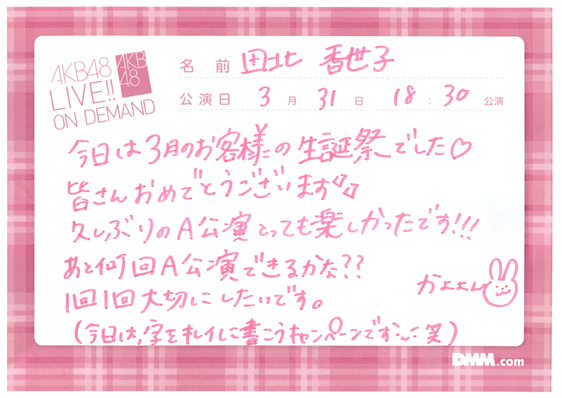 AKB48
LIVE!!
ON DEMAND
AKB
48
名前 田北 香世子
公演日 3月31日 18:30公演
今日は3月のお客様の生誕祭でした♡
皆さんおめでとうございます
久しぶりのA公演とっても楽しかったです!!!
あと何回A公演できるかな??
1回1回大切にしたいです。
かよよん
(今日は、字をキレイに書こうキャンペーンです 笑)
DMM.com